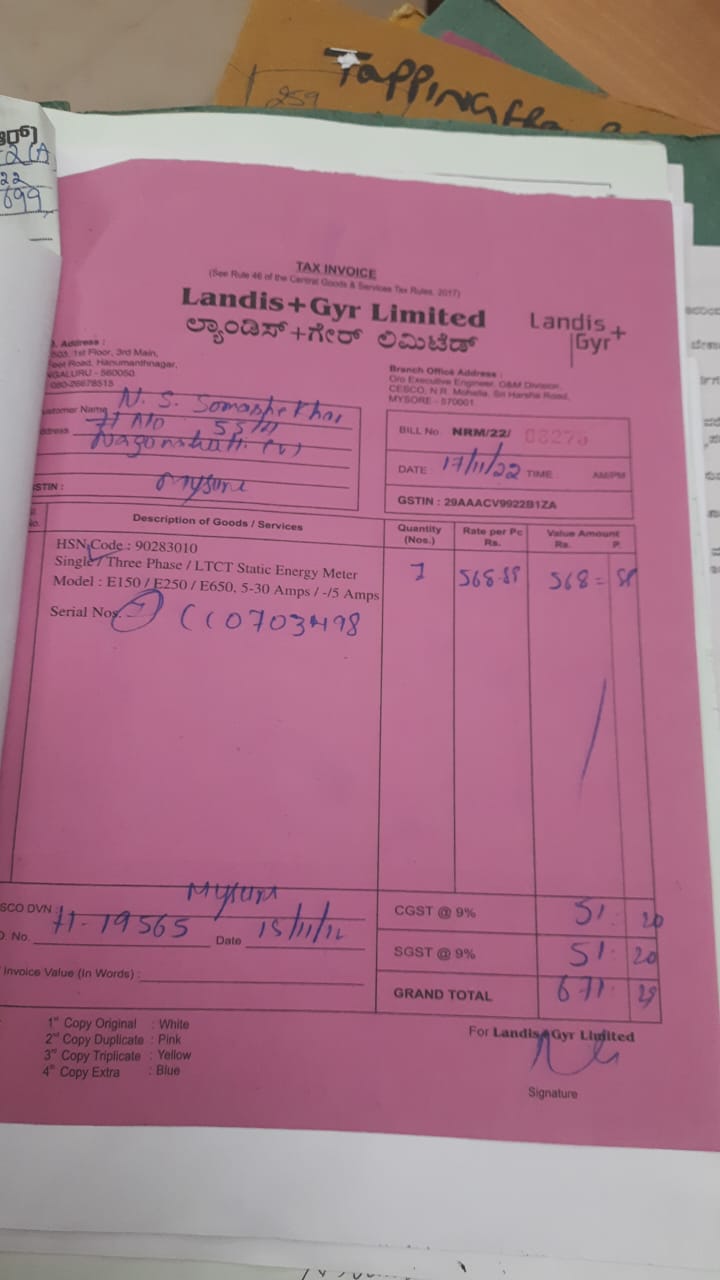 Tapping
259
22
699
TAX INVOICE
(See Rule 46 of the Central Goods & Services Tax Rules, 2017)
Landis+Gyr Limited
ಲ್ಯಾಂಡಿಸ್+ಗೇರ್ ಲಿಮಿಟೆಡ್
Landis+
Gyr
Address :
1st Floor, 3rd Main,
Road, Hanumanthnagar,
GALURU - 560050
080-26678515
Branch Office Address :
O/o Executive Engineer, O&M Division,
CESCO, N.R. Mohalla, Sri Harsha Road,
MYSORE - 570001
ustomer Name N. S. Somashekhar
ddress
Mysuru
STIN :
BILL No. NRM/22/ 08275
DATE : 17/11/22 TIME : AM/PM
GSTIN : 29AAACV9922B1ZA
No. Description of Goods / Services Quantity (Nos.) Rate per Pc Rs. Value Amount Rs. P.
HSN Code : 90283010
Single / Three Phase / LTCT Static Energy Meter
Model : E150 / E250 / E650, 5-30 Amps / -/5 Amps
1 568.88 568 =
Serial Nos.
SCO DVN : Mysuru
O. No. 19565 Date 15/11/22
Invoice Value (In Words) :
CGST @ 9% 51. 20
SGST @ 9% 51. 20
GRAND TOTAL 671.
1st Copy Original : White
2nd Copy Duplicate : Pink
3rd Copy Triplicate : Yellow
4th Copy Extra : Blue
For Landis+Gyr Limited
Signature